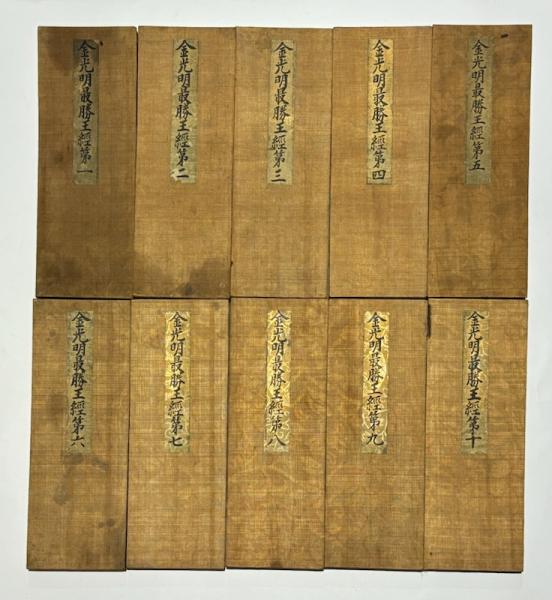 金光明最勝王經第一
金光明最勝王經第二
金光明最勝王經第三
金光明最勝王經第四
金光明最勝王經第五
金光明最勝王經第六
金光明最勝王經第七
金光明最勝王經第八
金光明最勝王經第九
金光明最勝王經第十